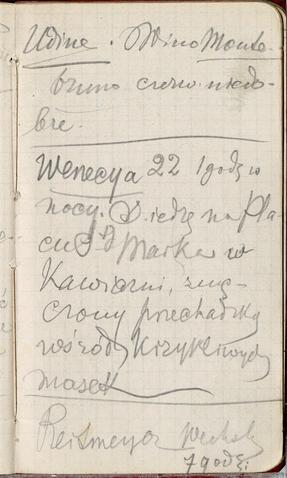 Udine. Wino Monte
bruno czerw. niedo-
bre.
Wenecya 22 1 godz w
nocy. Siedzę na Pla-
cu Sg Marka w
Kawiarni, zmę-
czony przechadzką
wśród Krzykliwych
masek
Reismeyer
7 godz: